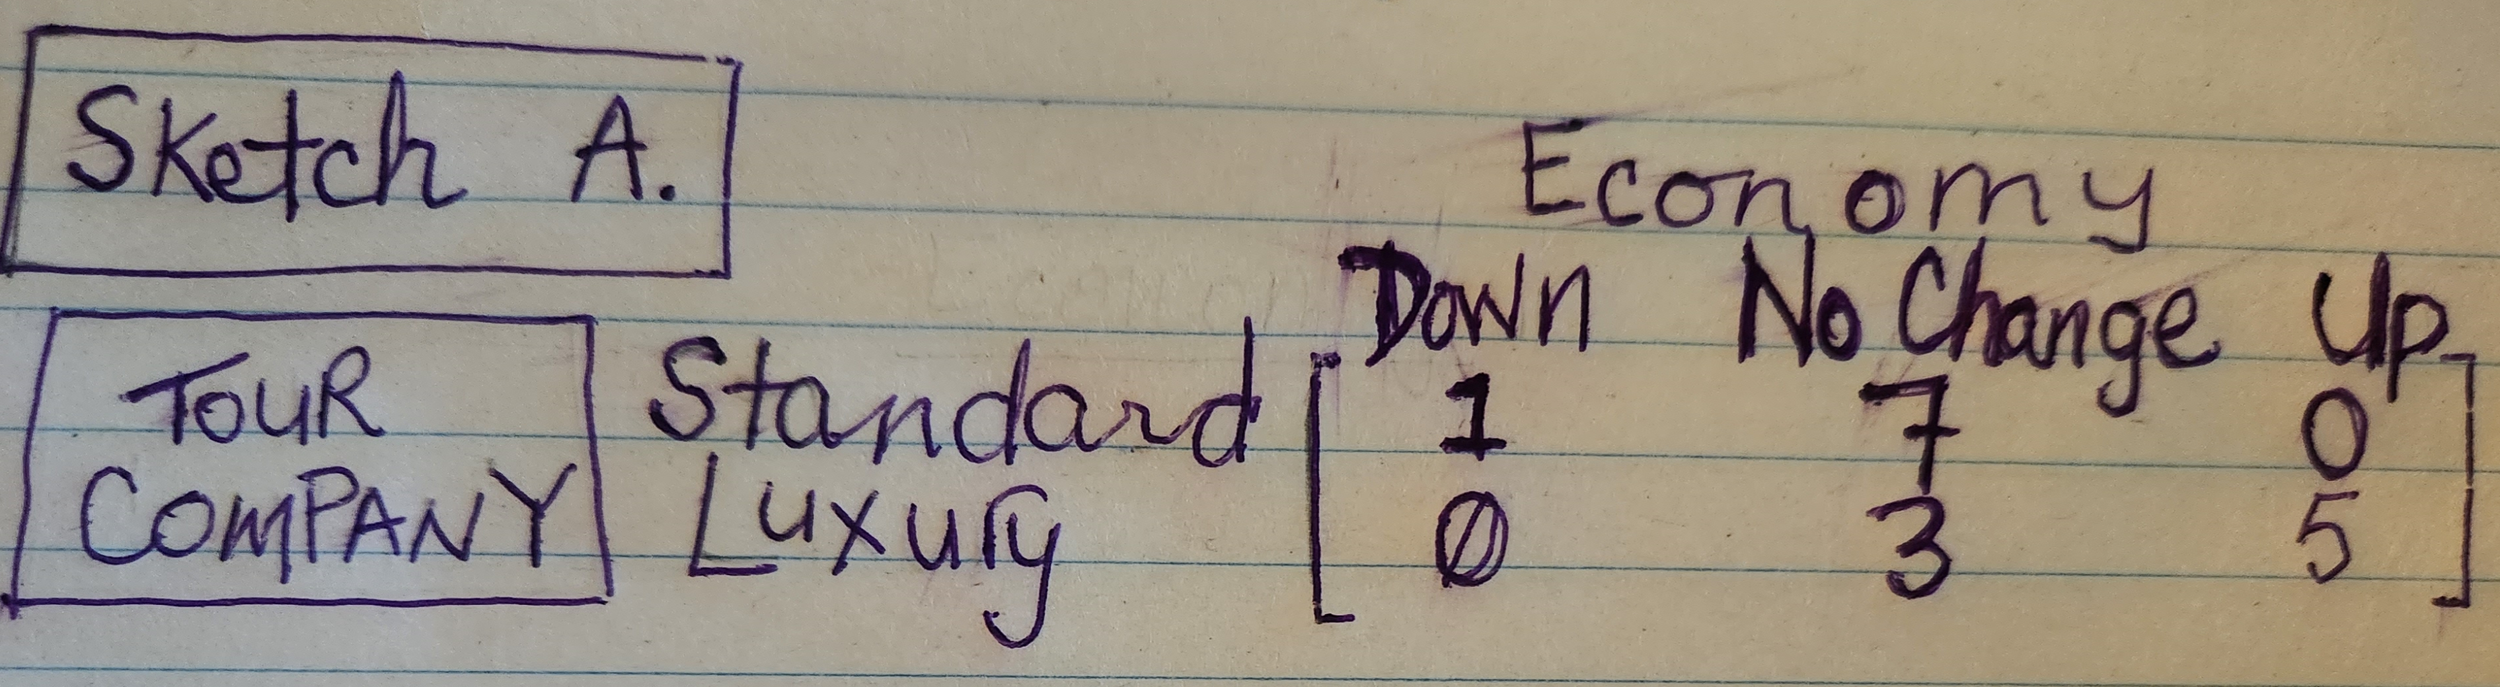 Sketch A.
Economy
Down No Change Up
TOUR Standard 1 7 0
COMPANY Luxury 0 3 5